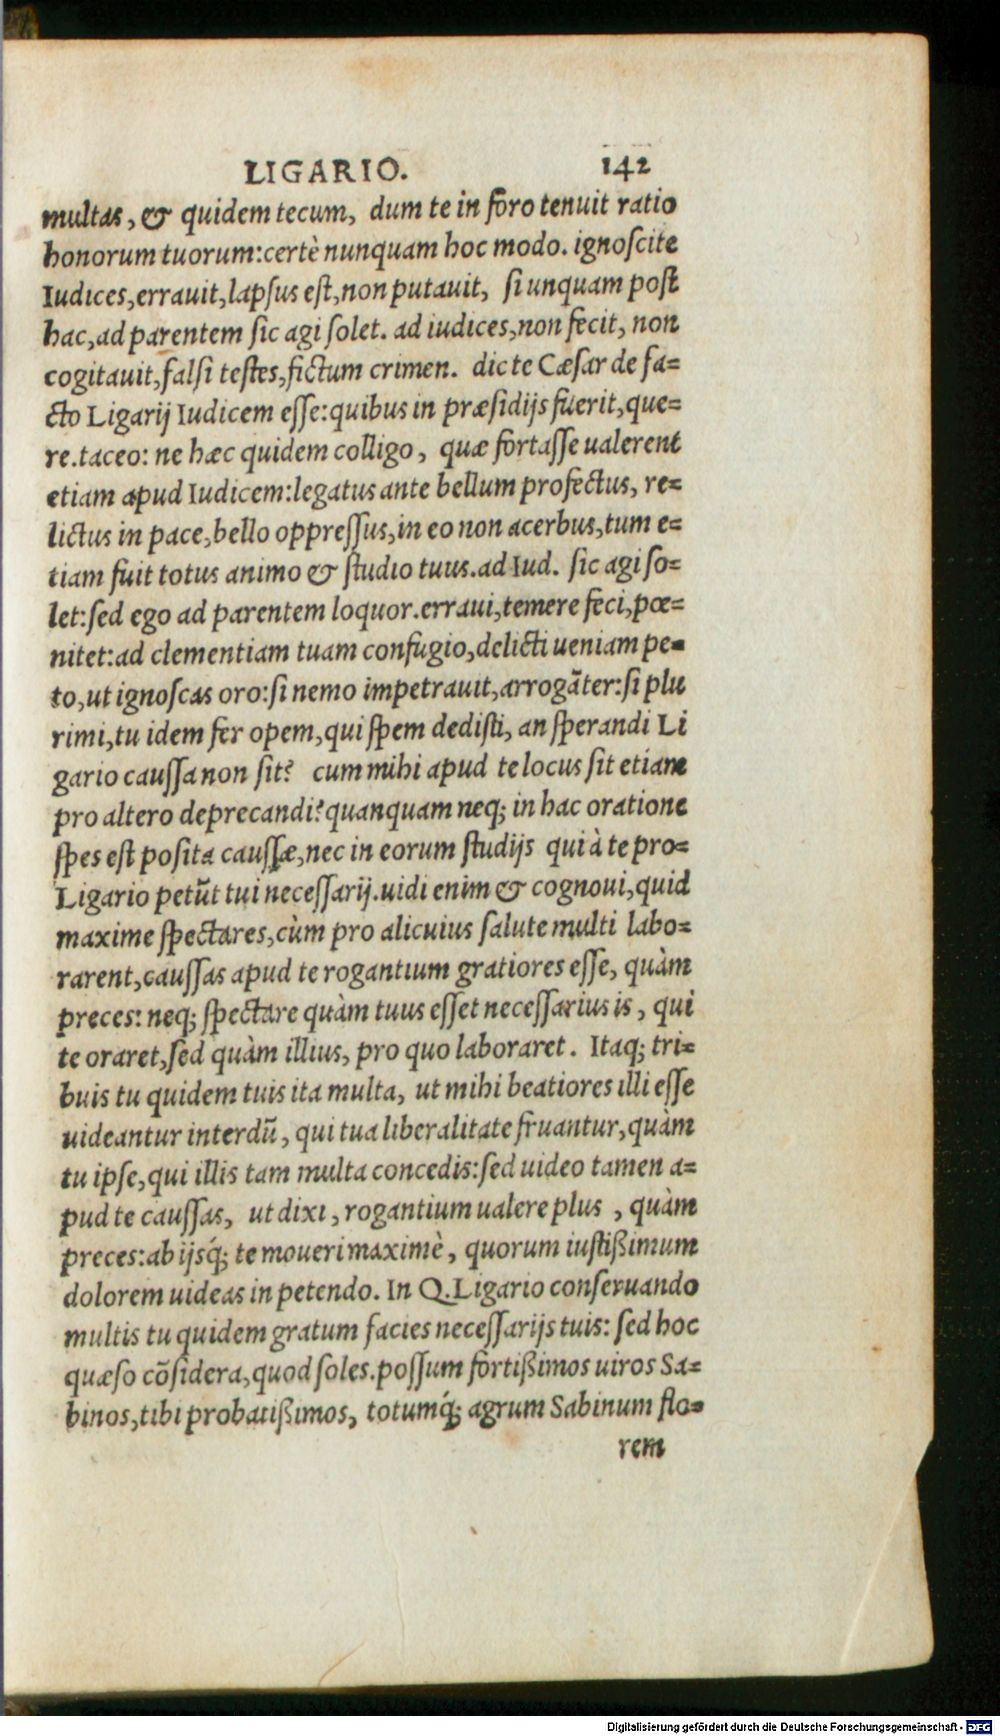 LIGARIO. 142
multas, & quidem tecum, dum te in foro tenuit ratio
honorum tuorum:certè nunquam hoc modo. ignoscite
Iudices,errauit,lapsus est,non putauit, si unquam post
hac,ad parentem sic agi solet. ad iudices,non fecit, non
cogitauit,falsi testes,fictum crimen. dic te Cæsar de fa=
cto Ligarij Iudicem esse:quibus in præsidijs fuerit,que=
re.taceo: ne hæc quidem colligo, quæ fortasse ualerent
etiam apud Iudicem:legatus ante bellum profectus, re=
lictus in pace,bello oppressus,in eo non acerbus,tum e=
tiam fuit totus animo & studio tuus.ad Iud. sic agi so=
let:sed ego ad parentem loquor.erraui,temere feci,pœ=
nitet:ad clementiam tuam confugio,delicti ueniam pe=
to,ut ignoscas oro:si nemo impetrauit,arrogãter:si plu
rimi,tu idem fer opem,qui spem dedisti, an sperandi Li
gario caussa non sit? cum mihi apud te locus sit etiam
pro altero deprecandi?quanquam neq; in hac oratione
spes est posita caussæ,nec in eorum studijs qui à te pro=
Ligario petũt tui necessarij.uidi enim & cognoui,quid
maxime spectares,cùm pro alicuius salute multi labo=
rarent,caussas apud te rogantium gratiores esse, quàm
preces: neq; spectare quàm tuus esset necessarius is, qui
te oraret,sed quàm illius, pro quo laboraret. Itaq; tri=
buis tu quidem tuis ita multa, ut mihi beatiores illi esse
uideantur interdũ, qui tua liberalitate fruantur,quàm
tu ipse,qui illis tam multa concedis:sed uideo tamen a=
pud te caussas, ut dixi, rogantium ualere plus , quàm
preces:ab ijsq́; te moueri maximè, quorum iustißimum
dolorem uideas in petendo. In Q.Ligario conseruando
multis tu quidem gratum facies necessarijs tuis: sed hoc
quæso cõsidera,quod soles.possum fortißimos uiros Sa=
binos,tibi probatißimos, totumq́; agrum Sabinum flo=
rem
Digitalisierung gefördert durch die Deutsche Forschungsgemeinschaft - DFG